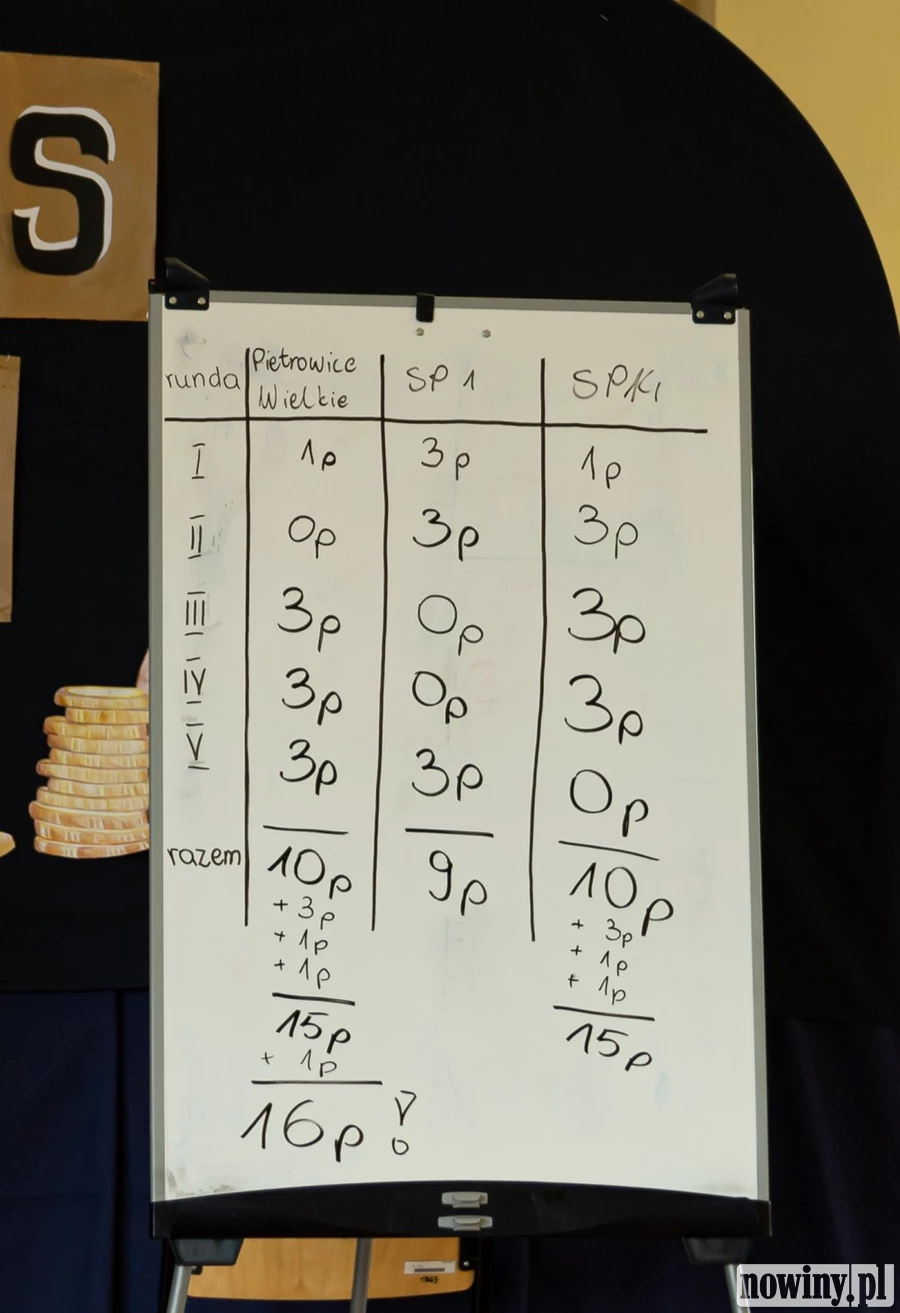 S
runda Pietrowice Wielkie SP 1 SPKi
I 1p 3p 1p
II 0p 3p 3p
III 3p 0p 3p
IV 3p 0p 3p
V 3p 3p 0p
razem 10p 9p 10p
+ 3p + 3p
+ 1p + 1p
+ 1p + 1p
15p 15p
+ 1p
16p !
nowiny.pl